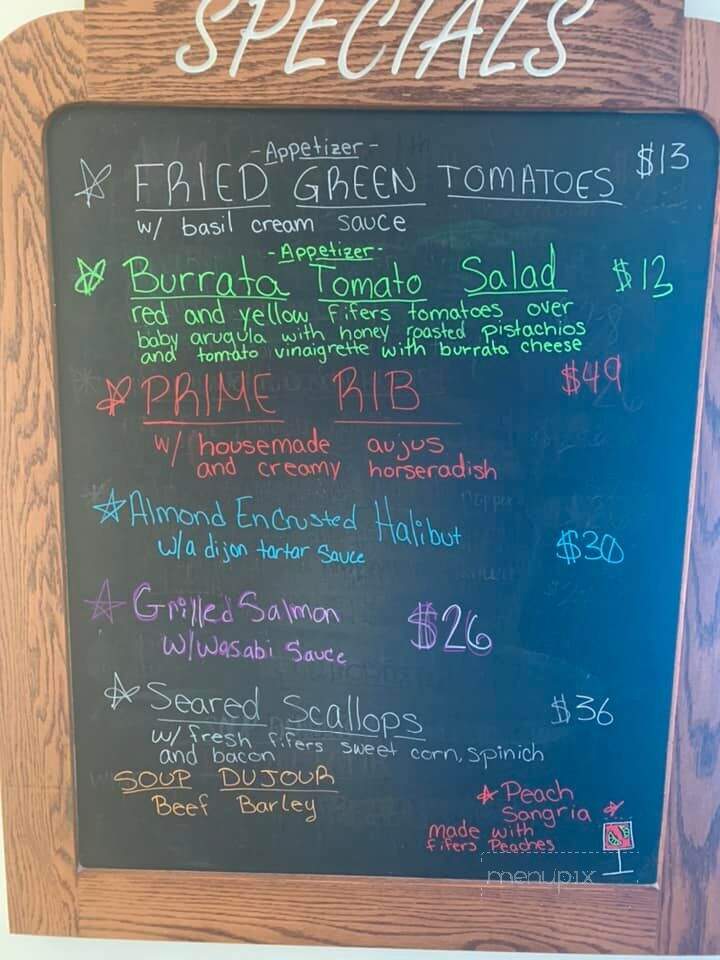 SPECIALS
-Appetizer-
FRIED GREEN TOMATOES $13
w/ basil cream sauce
-Appetizer-
Burrata Tomato Salad $12
red and yellow fifers tomatoes over
baby arugula with honey roasted pistachios
and tomato vinaigrette with burrata cheese
PRIME RIB $49
w/ housemade aujus
and creamy horseradish
Almond Encrusted Halibut
w/a dijon tartar sauce $30
Grilled Salmon $26
w/Wasabi Sauce
Seared Scallops $36
w/ fresh fifers sweet corn, spinich
and bacon
SOUP DUJOUR
Beef Barley
Peach
Sangria
made with
fifers Peaches
menupix